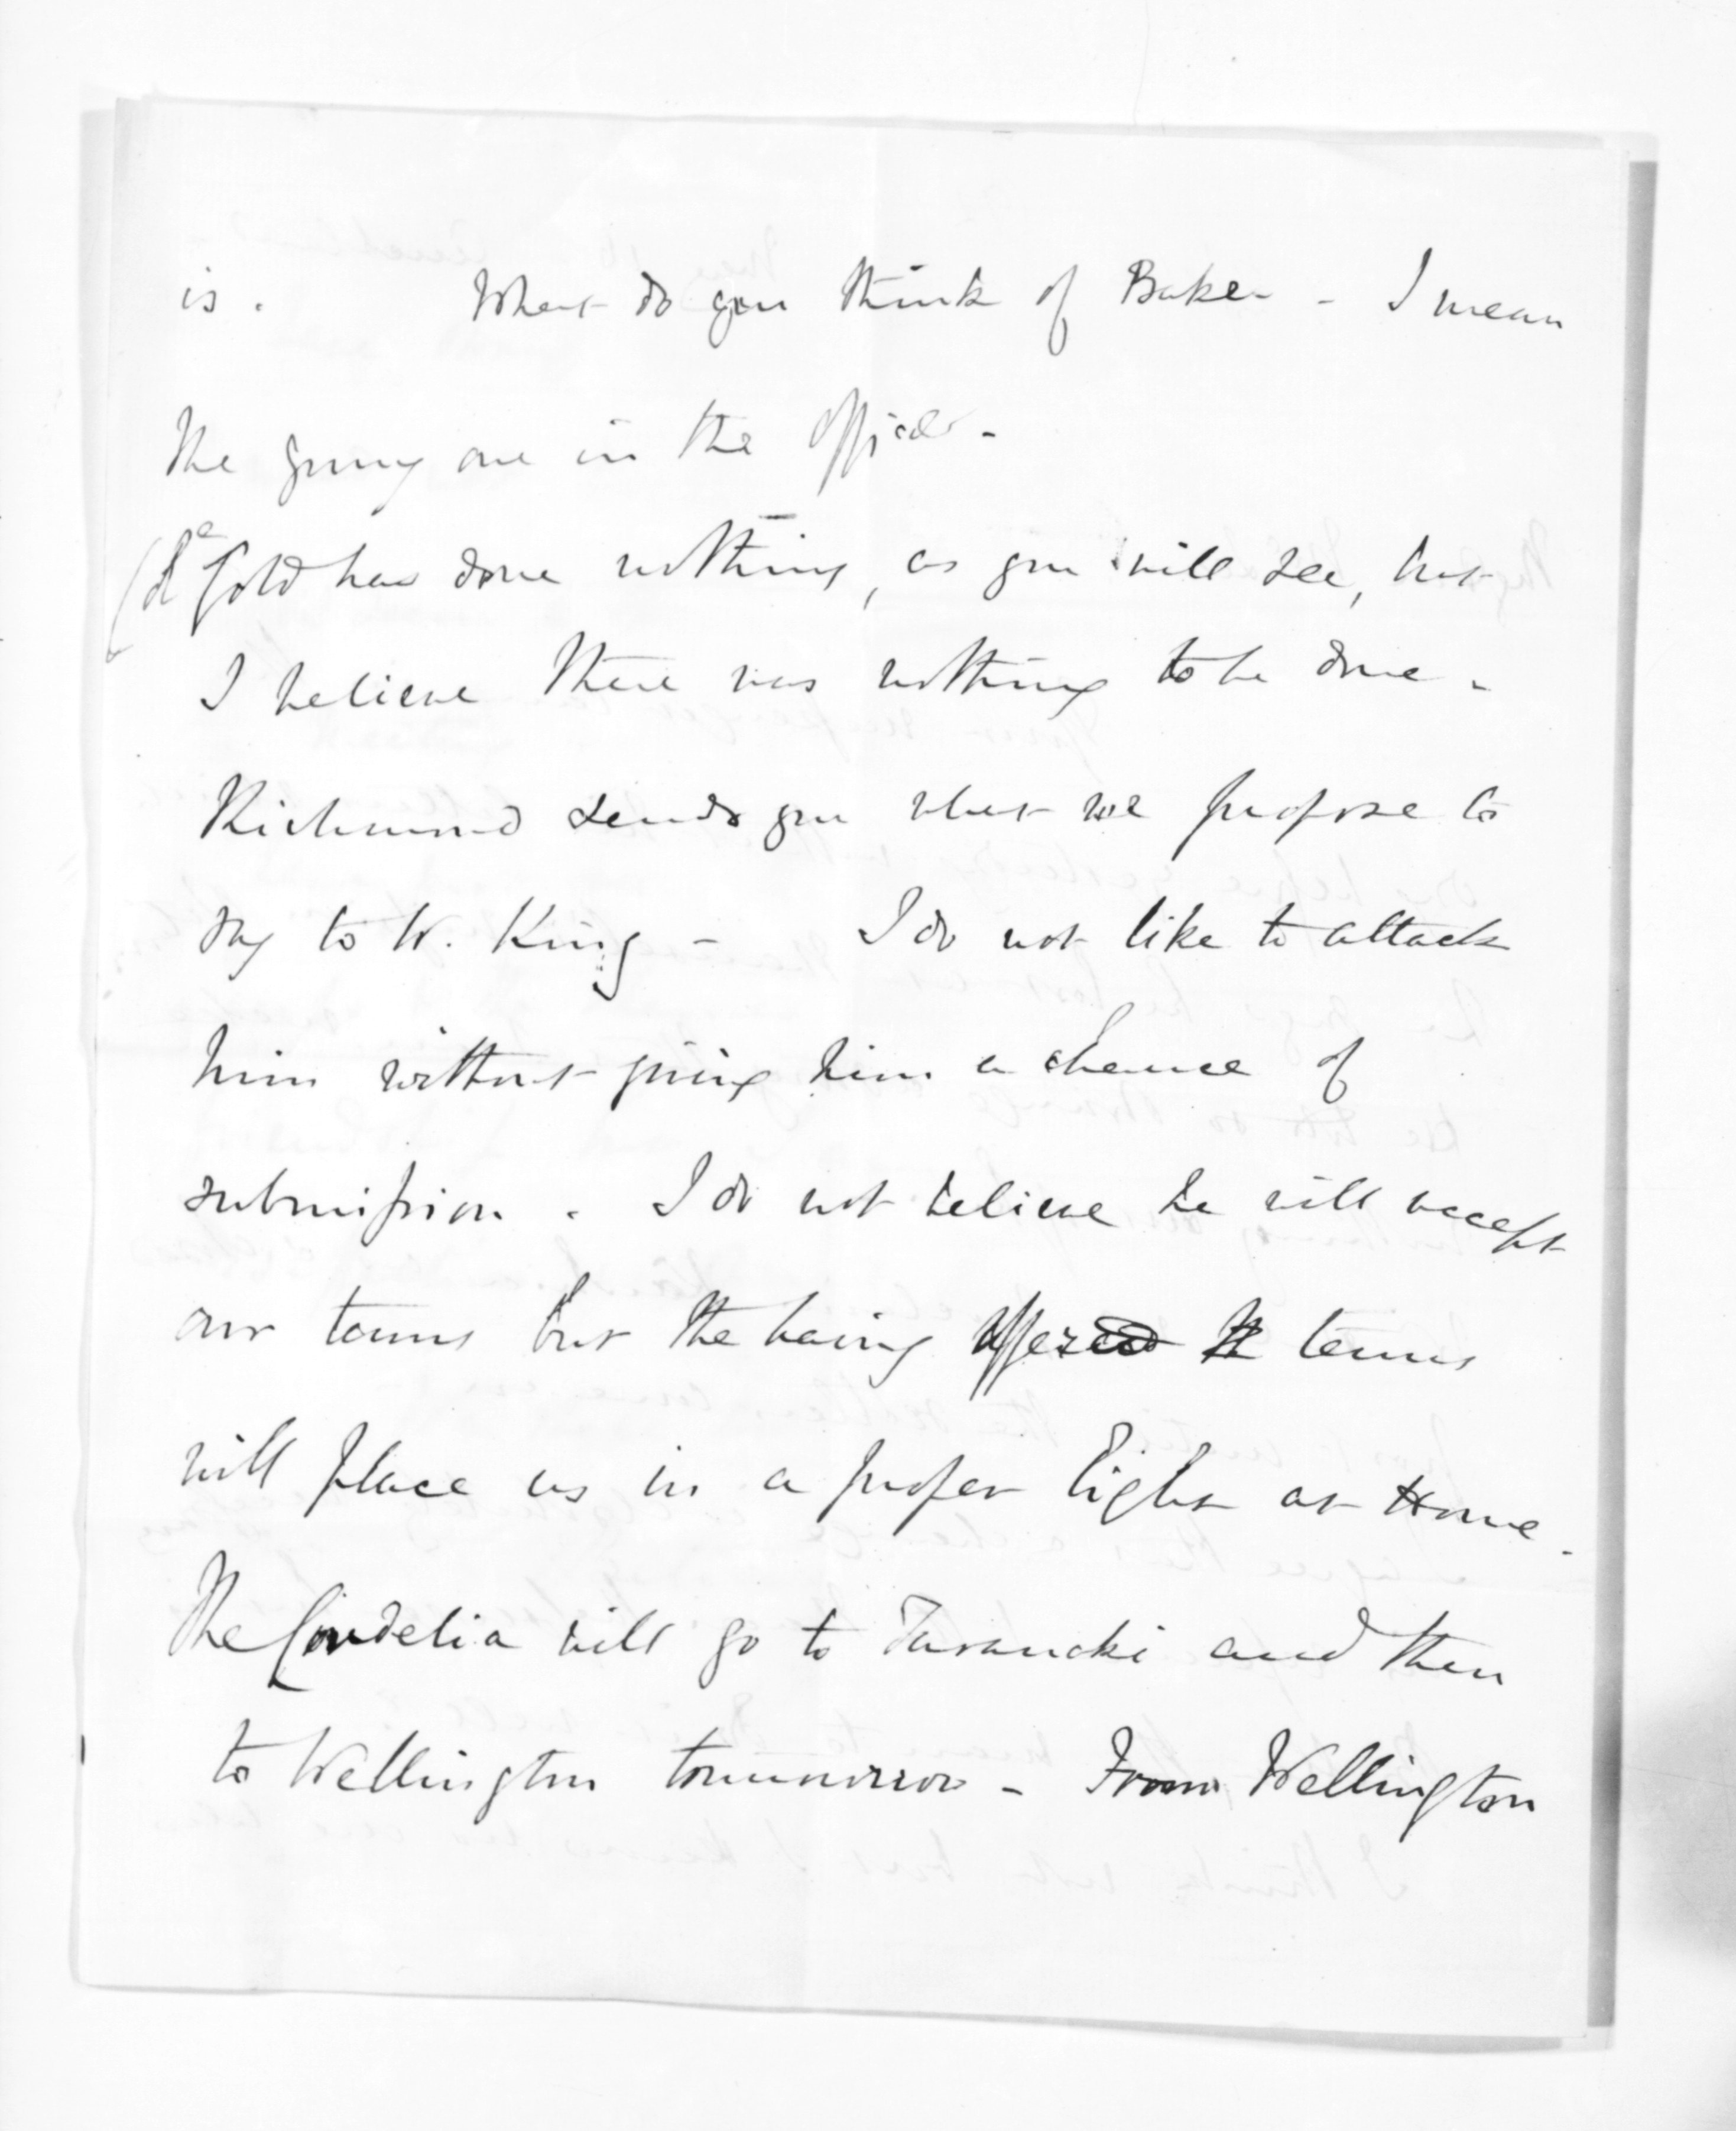 is. What do you think of Baker - I mean
the young one in the Office -
Gold has done nothing, as you will see, but
I believe there was nothing to be done -
Richmond sends you what we propose to
say to W. King - I do not like to attack
him without giving him a chance of
submission. I do not believe he will accept
our terms but the having offered terms
will place us in a proper light at Home.
The Cordelia will go to Taranaki and then
to Wellington tomorrow - From Wellington